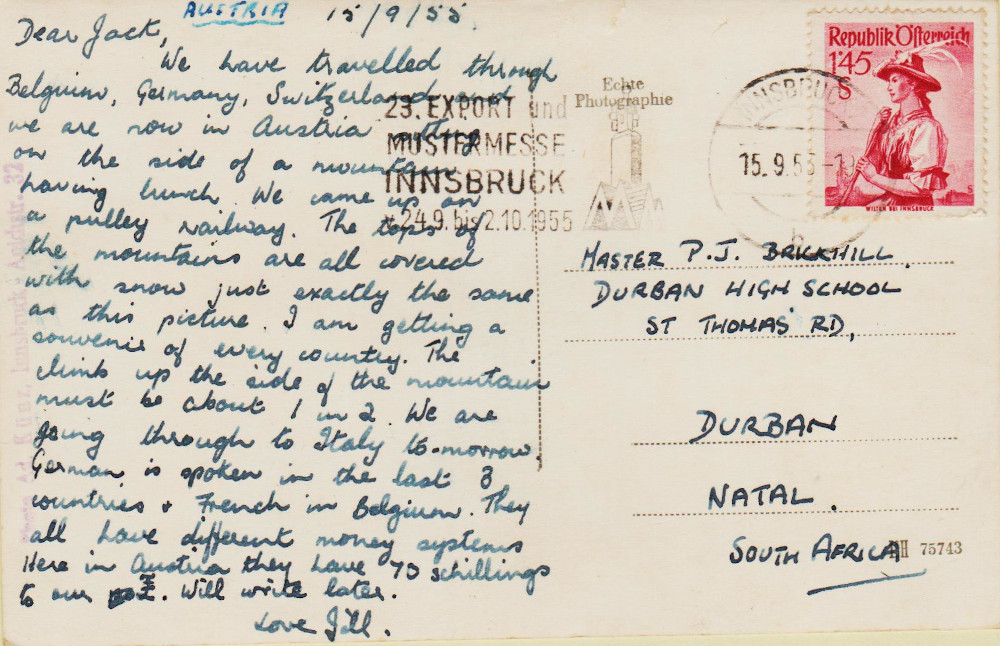 AUSTRIA 15/9/55
Dear Jack,
We have travelled through
Belguim, Germany, Switzerland and
we are now in Austria sitting
on the side of a mountain
having lunch. We came up on
a pulley railway. The tops of
the mountains are all covered
with snow just exactly the same
as this picture. I am getting a
souvenir of every country. The
climb up the side of the mountain
must be about 1 in 2. We are
going through to Italy to-morrow
German is spoken in the last 3
countries + French in Belgium. They
all have different money systems
Here in Austria they have 73 schillings
to our £. Will write later.
Love Jill.
23. EXPORT und
MUSTERMESSE
INNSBRUCK
* 24.9. bis 2.10.1955
Echte
Photographie
INNSBRUCK
15. 9. 55
Republik Österreich
1'45
S
WILTEN BEI INNSBRUCK
MASTER P.J. BRICKHILL
DURBAN HIGH SCHOOL
ST THOMAS' RD,
DURBAN
NATAL.
SOUTH AFRICA
75743
Innsbruck, Anichstr. 32